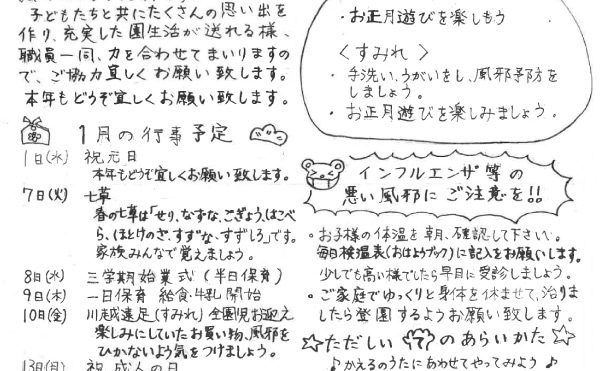 子どもたちと共にたくさんの思い出を
作り、充実した園生活が送れる様、
職員一同、力を合わせてまいりますの
で、ご協力宜しくお願い致します。
本年もどうぞ宜しくお願い致します。
1月の行事予定
1日(水) 祝 元日
本年もどうぞ宜しくお願い致します。
7日(火) 七草
春の七草は「せり、なずな、ごぎょう、はこべ
ら、ほとけのざ、すずな、すずしろ」です。
家族みんなで覚えましょう。
8日(水) 三学期始業式(半日保育)
9日(木) 一日保育 給食・牛乳開始
10日(金) 川越遠足(すみれ) 全園児お迎え
楽しみにしていたお買い物、風邪を
ひかないよう気をつけましょう。
13日(月) 祝 成人の日
・お正月遊びを楽しもう
<すみれ>
・手洗い、うがいをし、風邪予防を
しましょう。
・お正月遊びを楽しみましょう。
インフルエンザ等の
悪い風邪にご注意を!!
・お子様の体温を朝、確認して下さい。
毎日検温表(おはようブック)に記入をお願いします。
少しでも高い様でしたら早目に受診しましょう。
・ご家庭でゆっくりと身体を休ませて、治りま
したら登園するようお願い致します。
☆ただしい 手 のあらいかた☆
♪かえるのうたにあわせてやってみよう♪